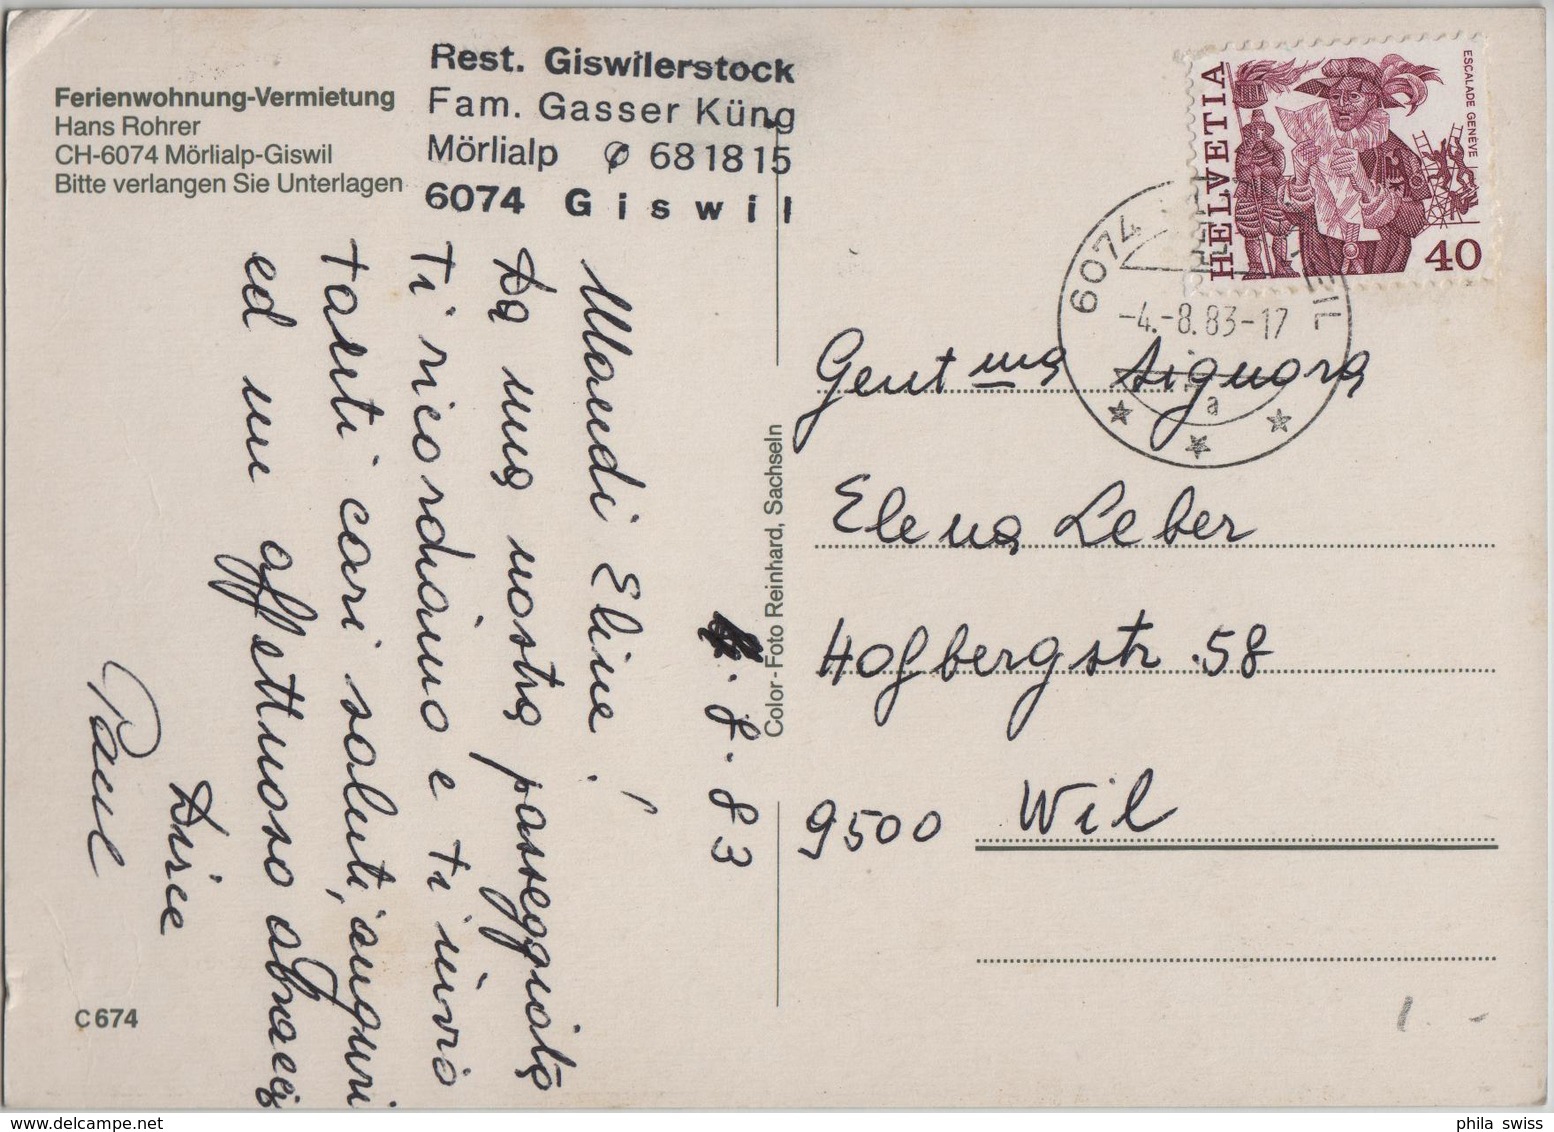 Ferienwohnung-Vermietung
Hans Rohrer
CH-6074 Mörlialp-Giswil
Bitte verlangen Sie Unterlagen
Rest. Giswilerstock
Fam. Gasser Küng
Mörlialp 681815
6074 Giswil
4.8.83
Mandi Eline!
Da una nostra passeggiata
Ti ricordiamo e ti invio
tanti cari saluti, auguri
ed un affettuoso abbraccio
Paul
C674
Color-Foto Reinhard, Sachseln
HELVETIA
ESCALADE GENÈVE
40
6074 GISWIL
-4.-8.83-17
a
Gent.ma Signora
Elena Leber
Hofbergstr. 58
9500 Wil
phila swiss